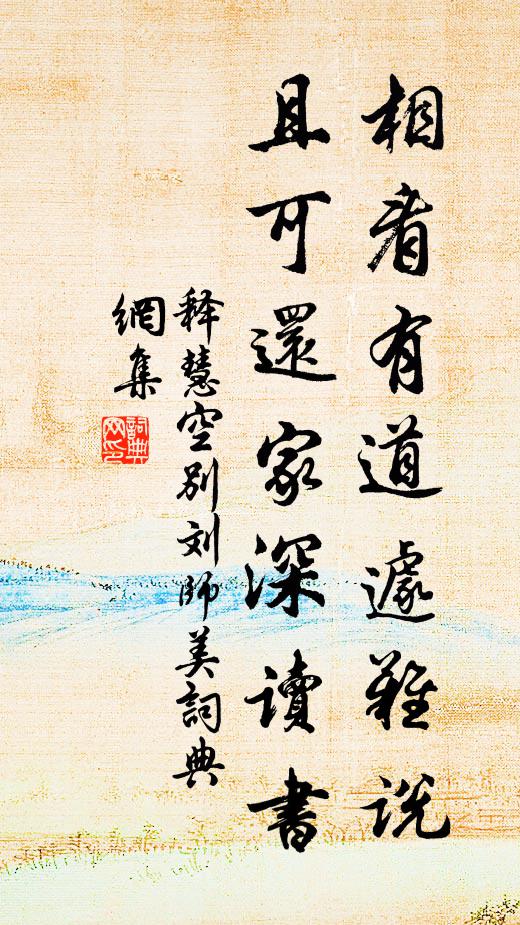 相看有道遽難说
且可還家深讀書
释慧空别刘師美詞典
網集
詞典
网印